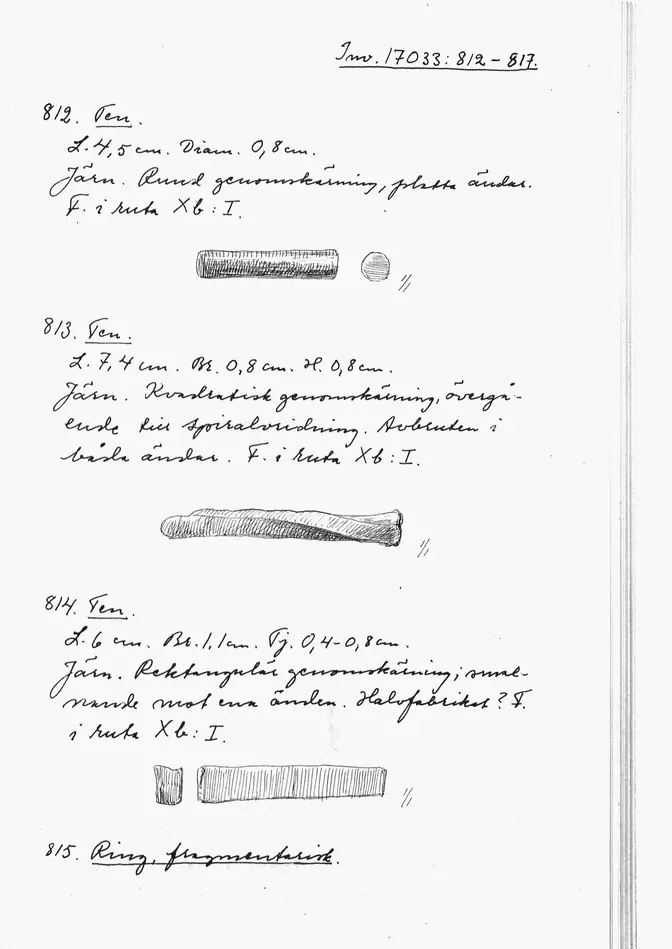 Inv. 17033: 812 – 817.
812. Ten.
L. 4,5 cm. Diam. 0,8 cm.
Järn. Rund genomskärning, platta ändar.
F. i ruta Xb: I.
1/1
813. Ten.
L. 7,4 cm. Br. 0,8 cm. H. 0,8 cm.
Järn. Kvadratisk genomskärning, övergå-
ende till spiralvridning. Avbruten i
båda ändar. F. i ruta Xb: I.
1/1
814. Ten.
L. 6 cm. Br. 1,1 cm. Tj. 0,4–0,8 cm.
Järn. Rektangulär genomskärning; smal-
nande mot ena änden. Halvfabrikat? F.
i ruta Xb: I.
1/1
815. Ring, fragmentarisk.